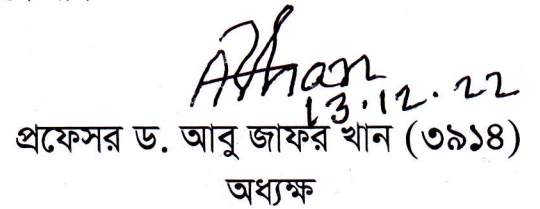 13.12.22
প্রফেসর ড. আবু জাফর খান (৩৯১৪)
অধ্যক্ষ